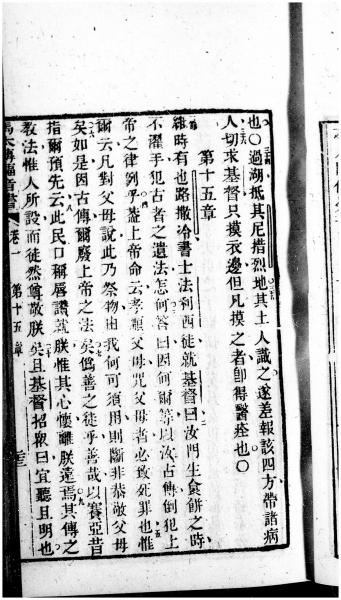 也〇過湖抵其尼措烈地其土人識之遂差報該四方帶諸病
人切求基督只摸衣邊但凡摸之者卽得醫痊也〇
第十五章
維時有也路撒冷書士法利西徒就基督曰汝門生食餅之時
不濯手犯古者之遺法怎何答曰因何爾等以汝古傳倒犯上
帝之律列乎蓋上帝命云孝順父母咒父母者必致死罪也惟
爾云凡對父母說此乃祭物由我何可須用則斷非恭敬父母
矣如是因古傳爾廢上帝之法矣僞善之徒乎善哉以賽亞昔
指爾預先云此民口稱唇讚就朕惟其心懷離朕遠焉其傳之
教法惟人所設而徒然尊敬朕矣且基督招衆曰宜聽且明也
馬太傳福音書 卷一 第十五章